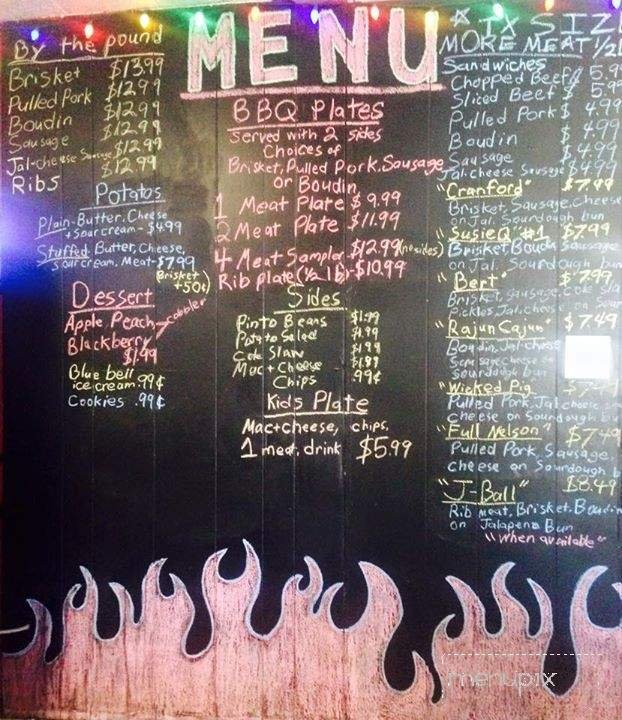 By the pound
Brisket $13.99
Pulled Pork $12.99
Boudin $12.99
Sausage $12.99
Jal-cheese Sausage $12.99
Ribs $12.99
Potatos
Plain-Butter, Cheese
+ Sour cream - $4.99
Stuffed Butter, Cheese,
sour cream, Meat-$7.99
(Brisket
+50¢)
Dessert
Apple, Peach
cobbler
Blackberry
$1.99
Blue bell
ice cream .99¢
Cookies .99¢
MENU
BBQ Plates
Served with 2 sides
Choices of
Brisket, Pulled Pork, Sausage
or Boudin
1 Meat Plate $9.99
2 Meat Plate $11.99
4 Meat Sampler $12.99 (no sides)
Rib plate (1/2 lb) - $10.99
Sides
Pinto Beans $1.99
Potato Salad $1.99
Cole Slaw $1.99
Mac + Cheese $1.99
Chips .99¢
Kids Plate
Mac+cheese, chips,
1 meat, drink $5.99
* TX SIZE
MORE MEAT 1/2
Sandwiches
Chopped Beef $5.99
Sliced Beef $5.99
Pulled Pork $4.99
Boudin $4.99
Sausage $4.99
Jal. Cheese Sausage $4.99
"Cranford" $7.99
Brisket, Sausage, Cheese
on Jal. Sourdough bun
"SusieQ #1" $7.99
Brisket Boudin Sausage
on Jal. Sourdough bun
"Bert" $7.99
Brisket, Sausage, Cole Slaw
Pickles, Jal. Cheese on Sour
"Rajun Cajun" $7.49
Boudin, Jal-cheese
Sausage Cheese on
Sourdough bun
"Wicked Pig" $7.49
Pulled Pork, Jal. cheese
cheese on Sourdough bun
"Full Nelson" $7.49
Pulled Pork, Sausage,
cheese on Sourdough b
"J-Ball" $8.49
Rib meat, Brisket, Boudin
on Jalapeno Bun
"when available"
menupix